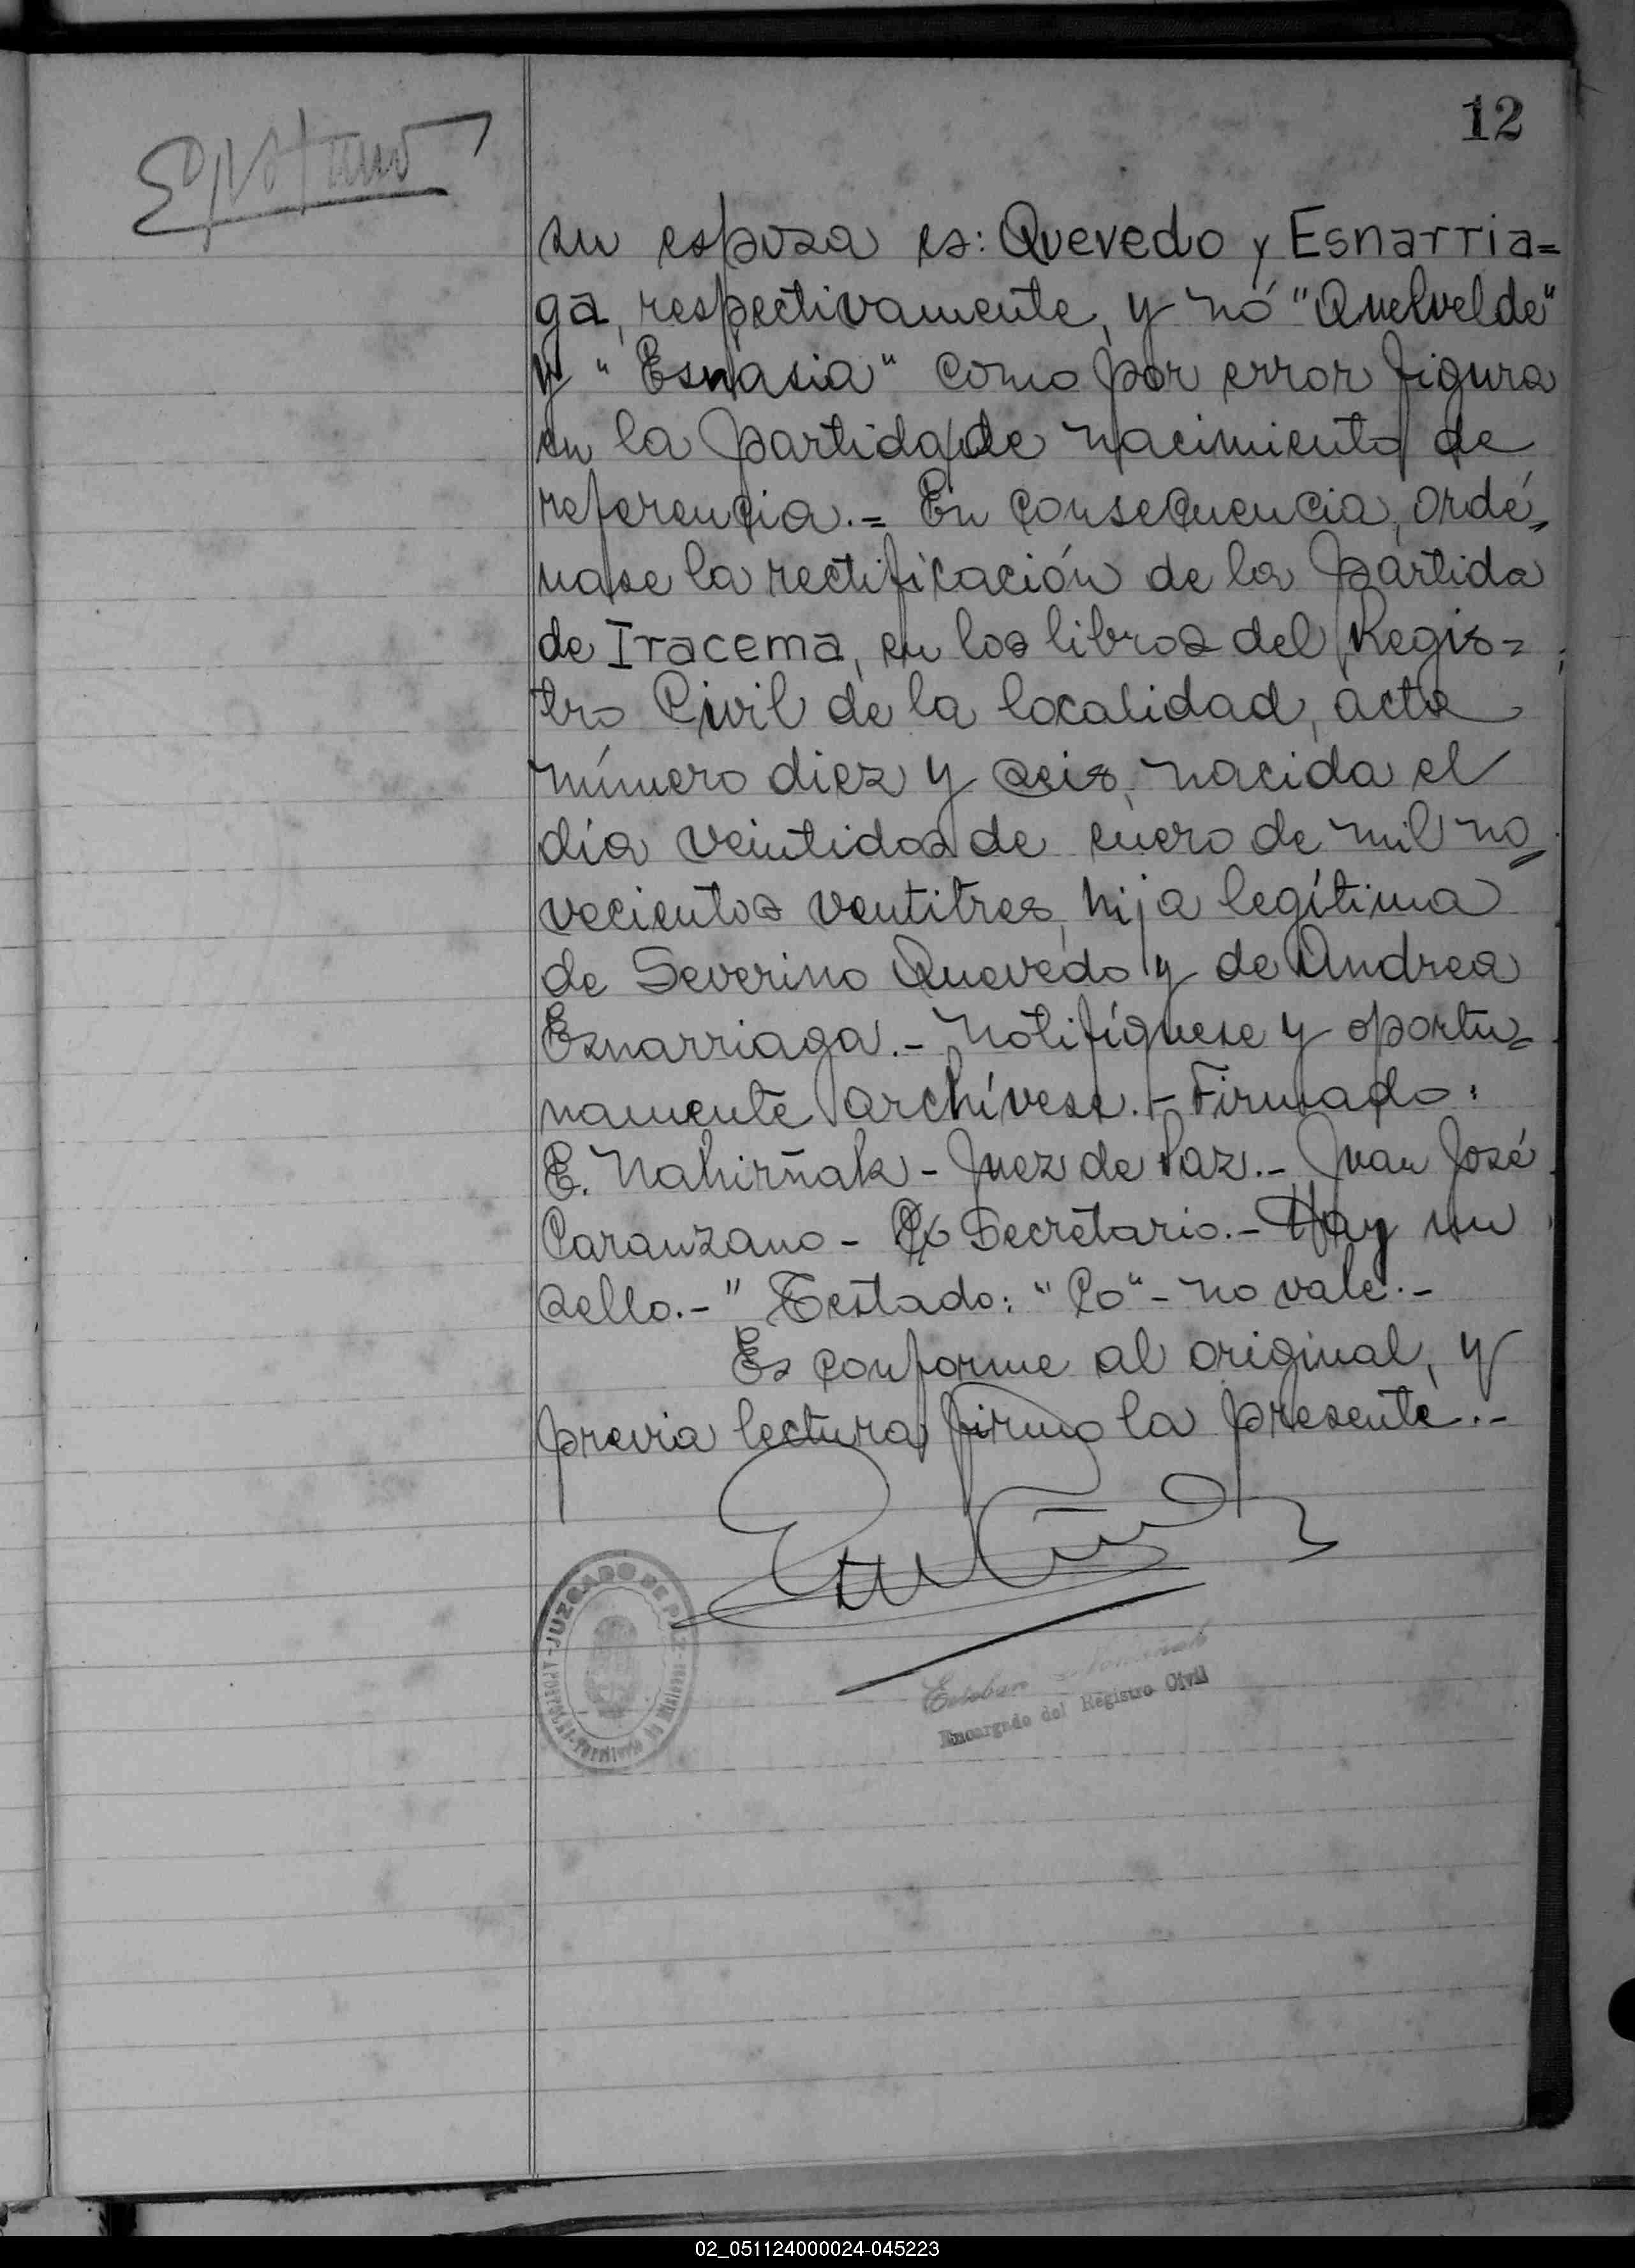 12
su esposa es: Quevedo y Esnarria=
ga, respectivamente, y nó "Quelvelde"
y "Esnasia" como por error figura
en la partida de nacimiento de
referencia.= En consecuencia, ordé=
nase la rectificación de la partida
de Iracema, en los libros del Regis=
tro Civil de la localidad, acta
número diez y seis, nacida el
día veintidos de enero de mil no=
vecientos ventitres, hija legítima
de Severino Quevedo y de Andrea
Esnarriaga.- Notifíquese y oportu=
namente archívese.- Firmado:
E. Nahirñak - Juez de Paz.- Juan José
Caranzano - Secretario.- Hay un
sello.-" Testado: "Co" - no vale.-
Es conforme al original, y
previa lectura firmo la presente.-
JUZGADO DE PAZ
APOSTOLES - Territorio de Misiones
Esteban
Encargado del Registro Civil
02_051124000024-045223